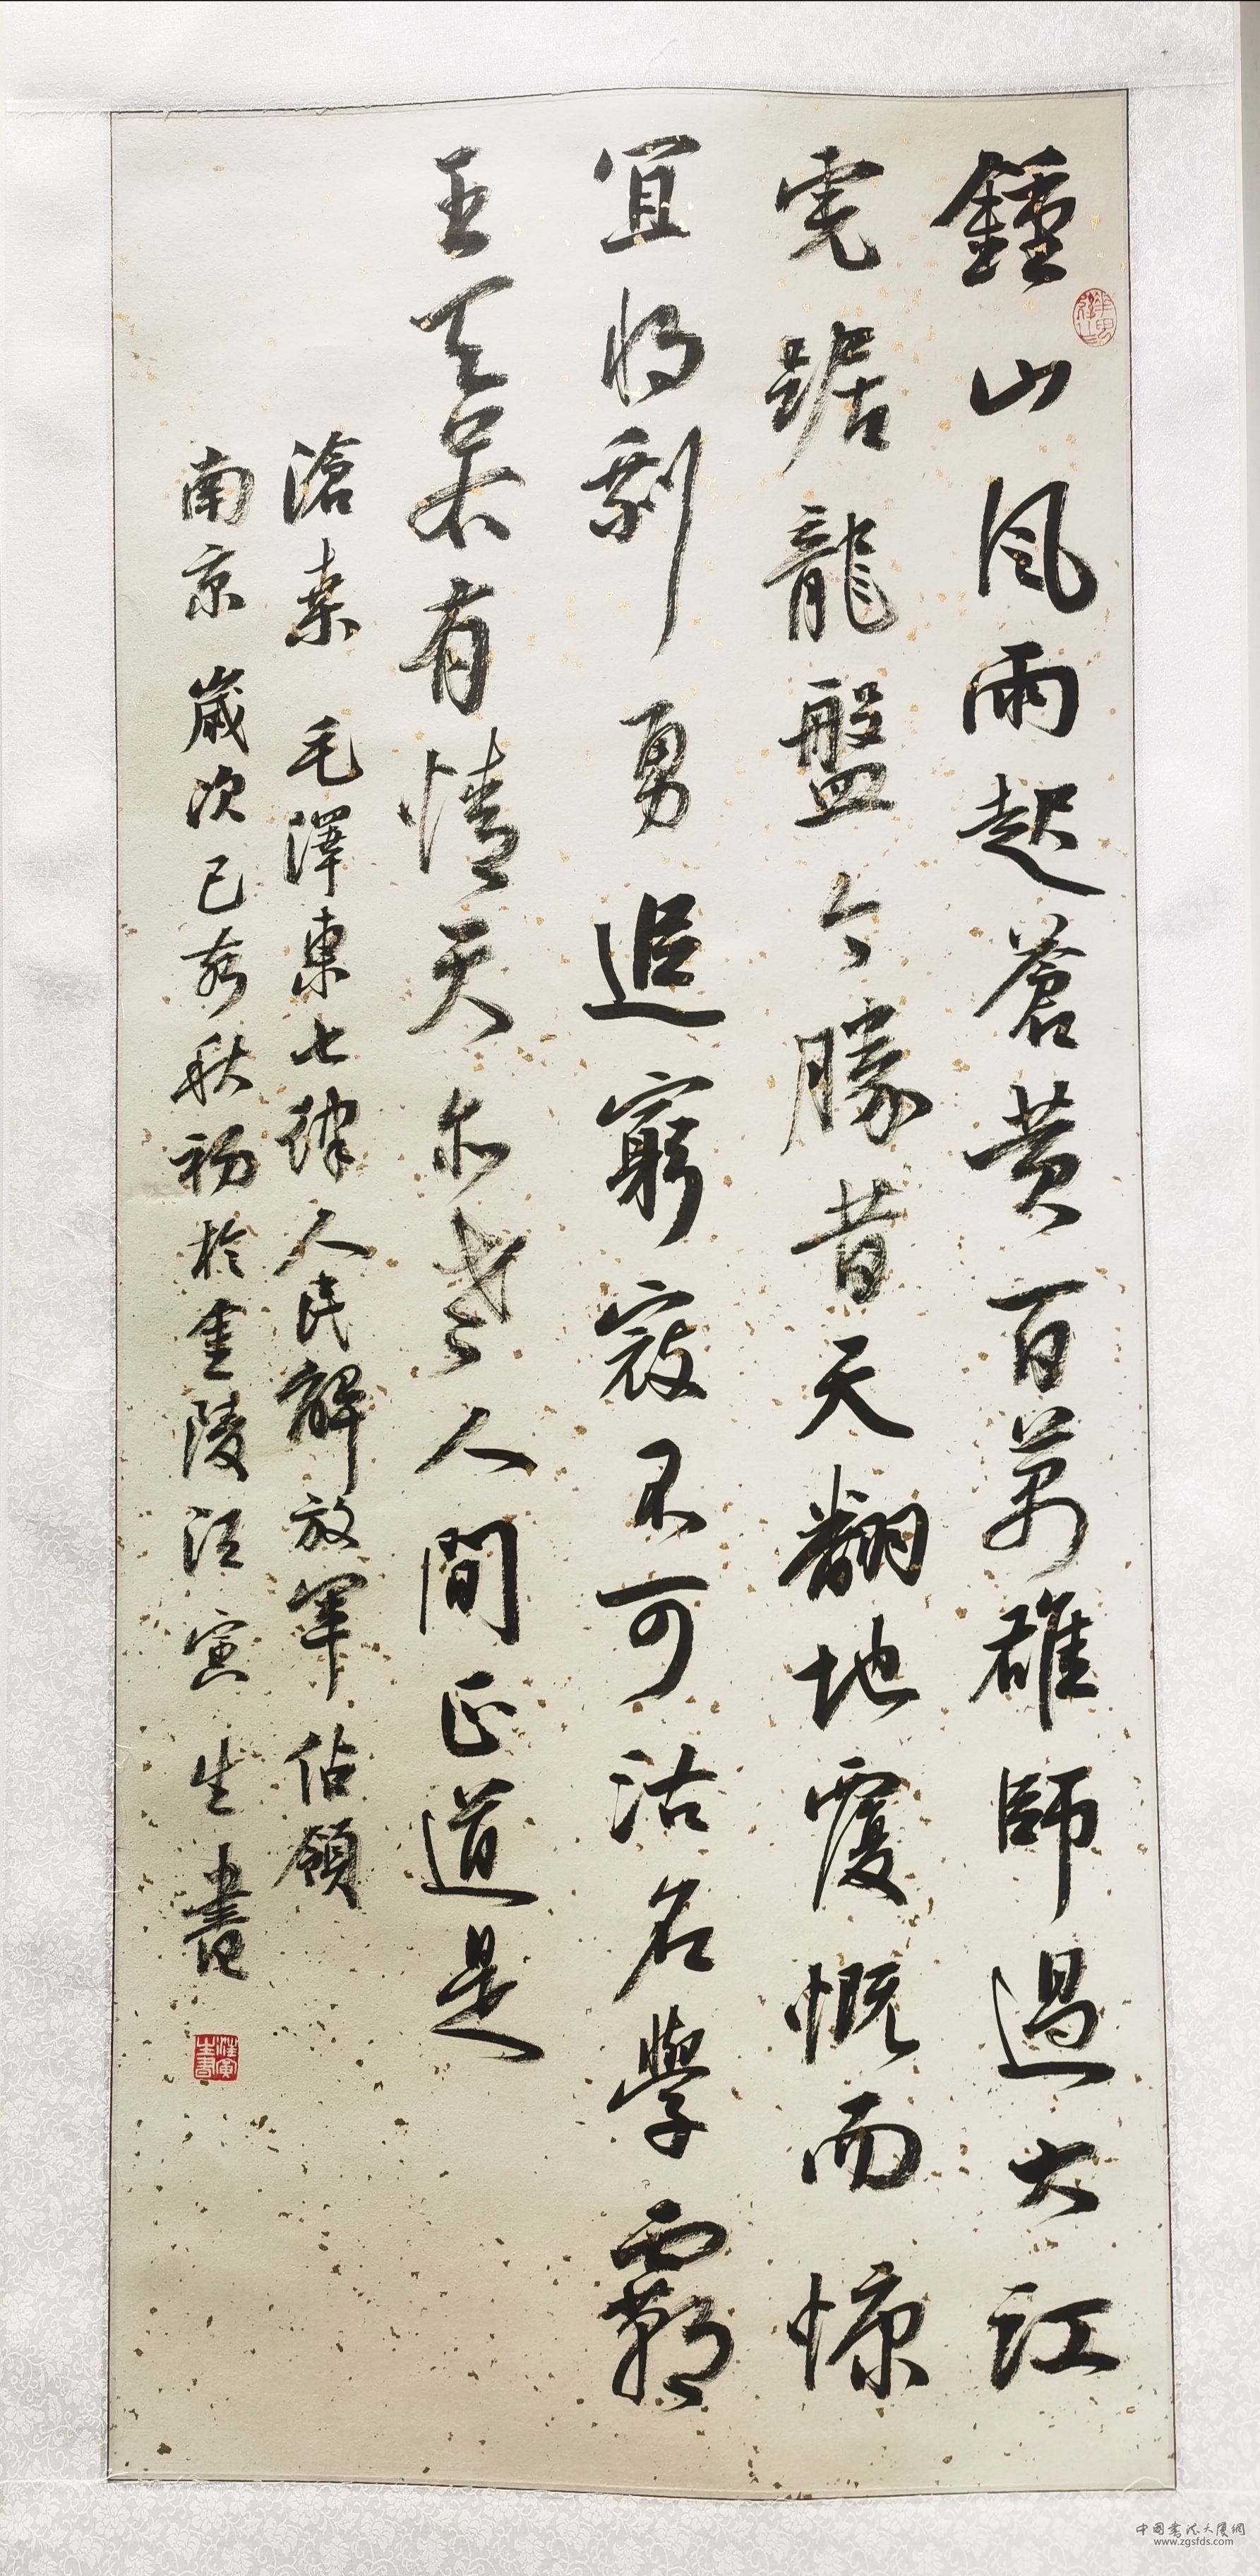 鍾山風雨起蒼黄百萬雄師過大江
虎踞龍盤今勝昔天翻地覆慨而慷
宜将剩勇追窮寇不可沽名學霸
王天若有情天亦老人間正道是
滄桑 毛澤東七律人民解放軍佔領
南京 歲次己亥秋初於金陵汪寅生書
汪寅生書
中国書法大厦網
www.zgsfds.com